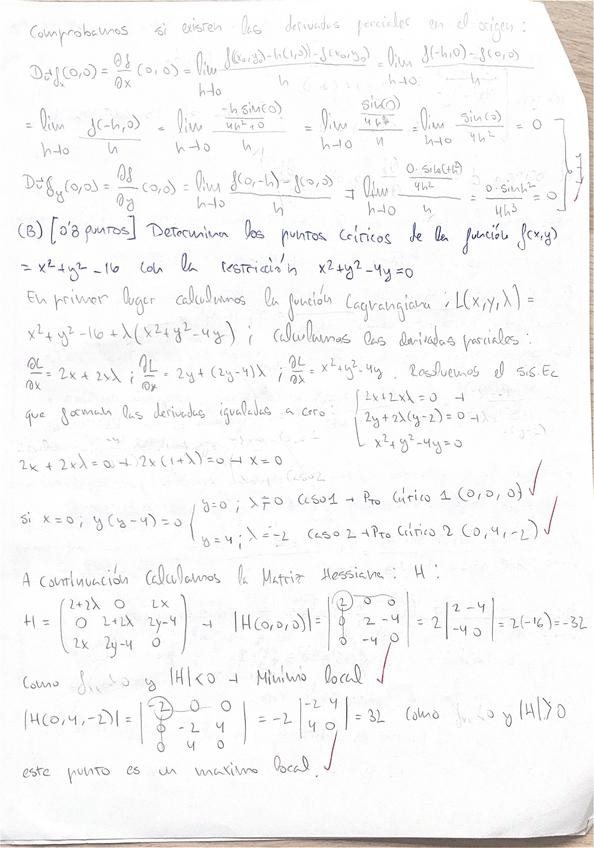 Comprobamos si existen las derivadas parciales en el origen:
D_u⃗ f_x(0,0) = ∂f/∂x (0,0) = lim h→0 (f((x₀,y₀)-h(1,0)) - f(x₀,y₀))/h = lim h→0 (f(-h,0) - f(0,0))/h
= lim h→0 f(-h,0)/h = lim h→0 (-h sin(0)/(4h²+0))/h = lim h→0 (sin(0)/4h)/h = lim h→0 sin(0)/4h² = 0
D_u⃗ f_y(0,0) = ∂f/∂y (0,0) = lim h→0 (f(0,-h) - f(0,0))/h → lim h→0 (0·sin(+h)/4h²)/h = 0·sin h²/4h³ = 0
(B) [0'8 puntos] Determina los puntos críticos de la función f(x,y)
= x²+y²-16 con la restricción x²+y²-4y=0
En primer lugar calculamos la función Lagrangiana; L(x,y,λ) =
x²+y²-16+λ(x²+y²-4y); calculamos las derivadas parciales:
∂L/∂x = 2x+2xλ; ∂L/∂x = 2y+(2y-4)λ; ∂L/∂x = x²+y²-4y. Resolvemos el sis.Ec
que forman las derivadas igualadas a cero: { 2x+2xλ=0 →
2y+2λ(y-2)=0 →
x²+y²-4y=0
2x+2xλ=0 → 2x(1+λ)=0 → x=0
Caso 2
si x=0; y(y-4)=0 { y=0; λ=0 Caso 1 → Pto Crítico 1 (0,0,0) ✓
y=4; λ=-2 Caso 2 → Pto Crítico 2 (0,4,-2) ✓
A continuación calculamos la Matriz Hessiana: H:
H = (2+2λ 0 2x
0 2+2λ 2y-4
2x 2y-4 0) → |H(0,0,0)| = |2 0 0
0 2 -4
0 -4 0| = 2 |2 -4
-4 0| = 2(-16) = -32
Como y |H|<0 → Mínimo local ✓
|H(0,4,-2)| = |-2 0 0
0 -2 4
0 4 0| = -2 |-2 4
4 0| = 32 como y |H|>0
este punto es un maximo local. ✓